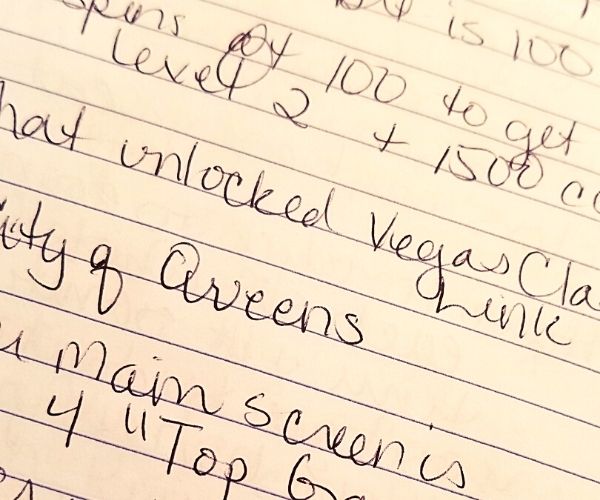 is 100
spins at 100 to get
level 2 + 1500
hat unlocked Vegas Cla
Link
ity of Queens
main screen is
4 "Top Ga